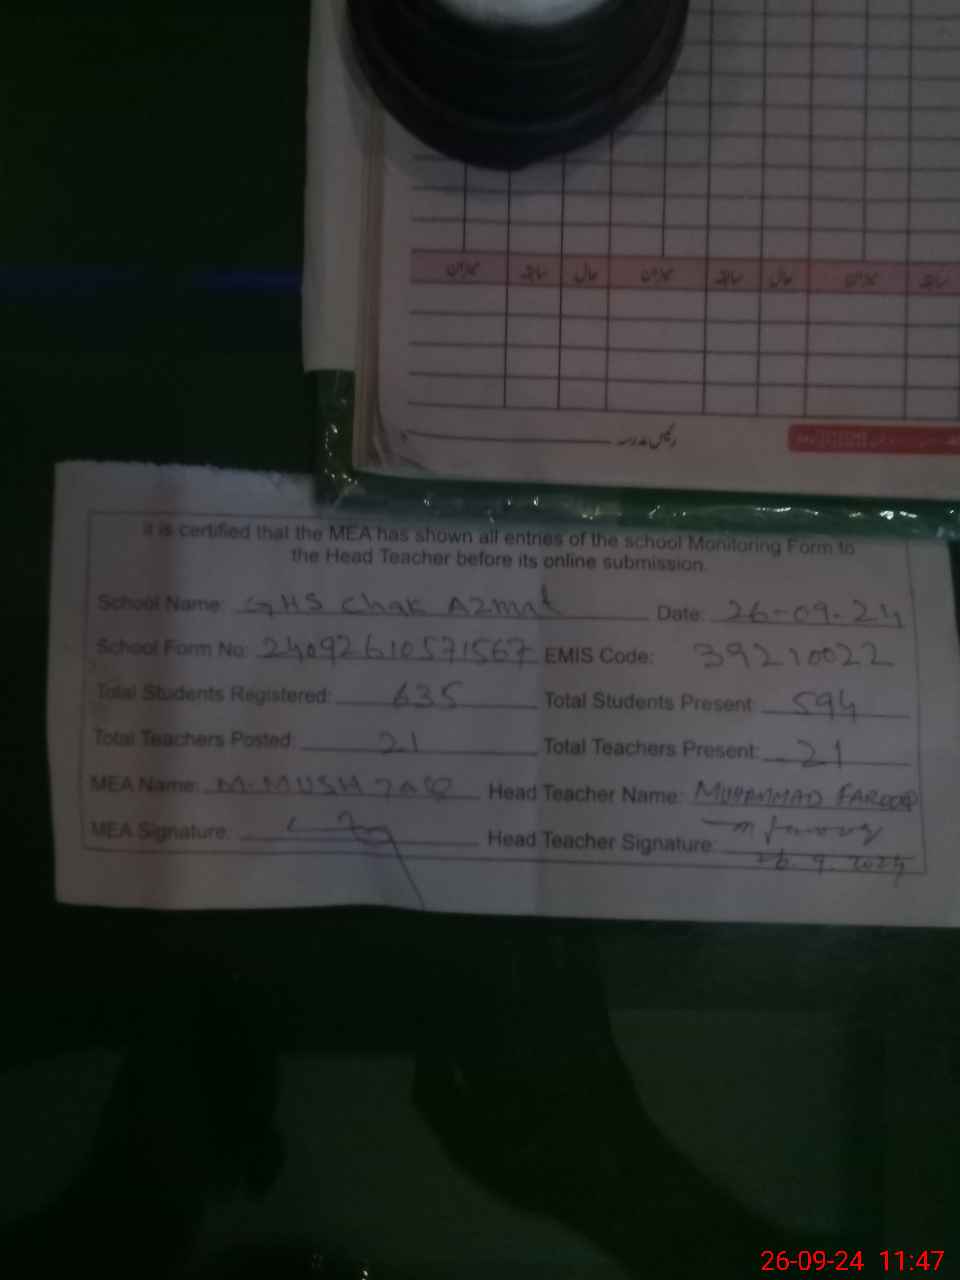 کلاس سابقہ حال کلاس سابقہ حال کلاس سابقہ
رئیس مدرسہ
it is certified that the MEA has shown all entries of the school Monitoring Form to
the Head Teacher before its online submission.
School Name: GHS Chak Azmat Date: 26-09-24
School Form No: 24092610571567 EMIS Code: 39210022
Total Students Registered: 635 Total Students Present: 594
Total Teachers Posted: 21 Total Teachers Present: 21
MEA Name: M. MUSHTAQ Head Teacher Name: MUHAMMAD FAROOQ
MEA Signature: Head Teacher Signature: m farooq
26.9.2024
26-09-24 11:47